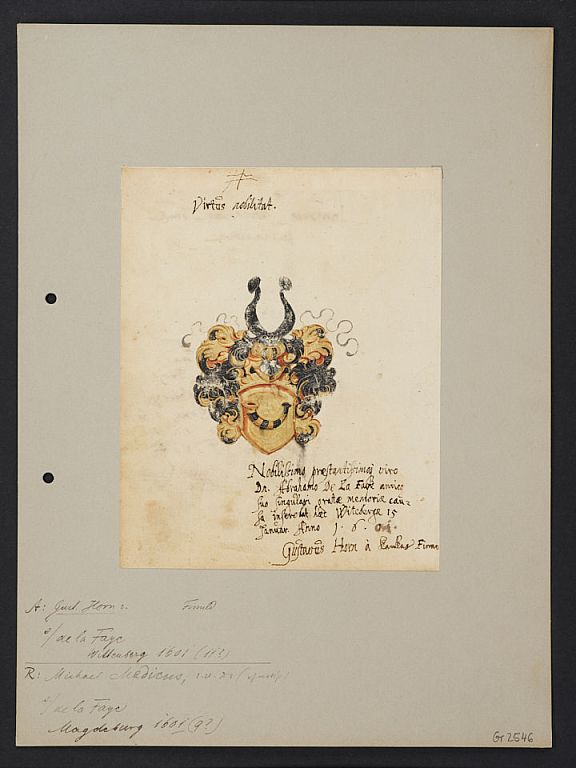 Virtus nobilitat.
Nobilissimo præstantissimoq viro
Dn. Abrahamo De La Faye amico
suo singulari gratæ memoriæ cau=
sa inserebat hæc Witebergæ 15
Januar. Anno 1. 6.
Gustavus Horn à
A: Gust. Horn
de la Faye
Wittenberg 1601
R: Michael Medicus,
de la Faye
Magdeburg 1601 (9?)
Gr 2546